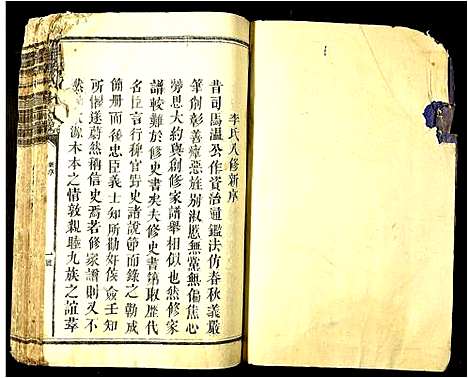 李氏八修新序
昔司馬溫公作資治通鑑法仿春秋義嚴
筆創彰善癉惡旌別淑慝無黨無偏焦心
勞思大約與創修家譜舉相似也然修家
譜較難於修史書矣夫修史書第取歷代
名臣言行稗官野史諸說節而錄之勒成
簡册而後忠臣義士知所勸奸佞僉壬知
所懼遂蔚然稱信史焉若修家譜則又不
然 源木本之情敦親睦九族之誼萃
新序